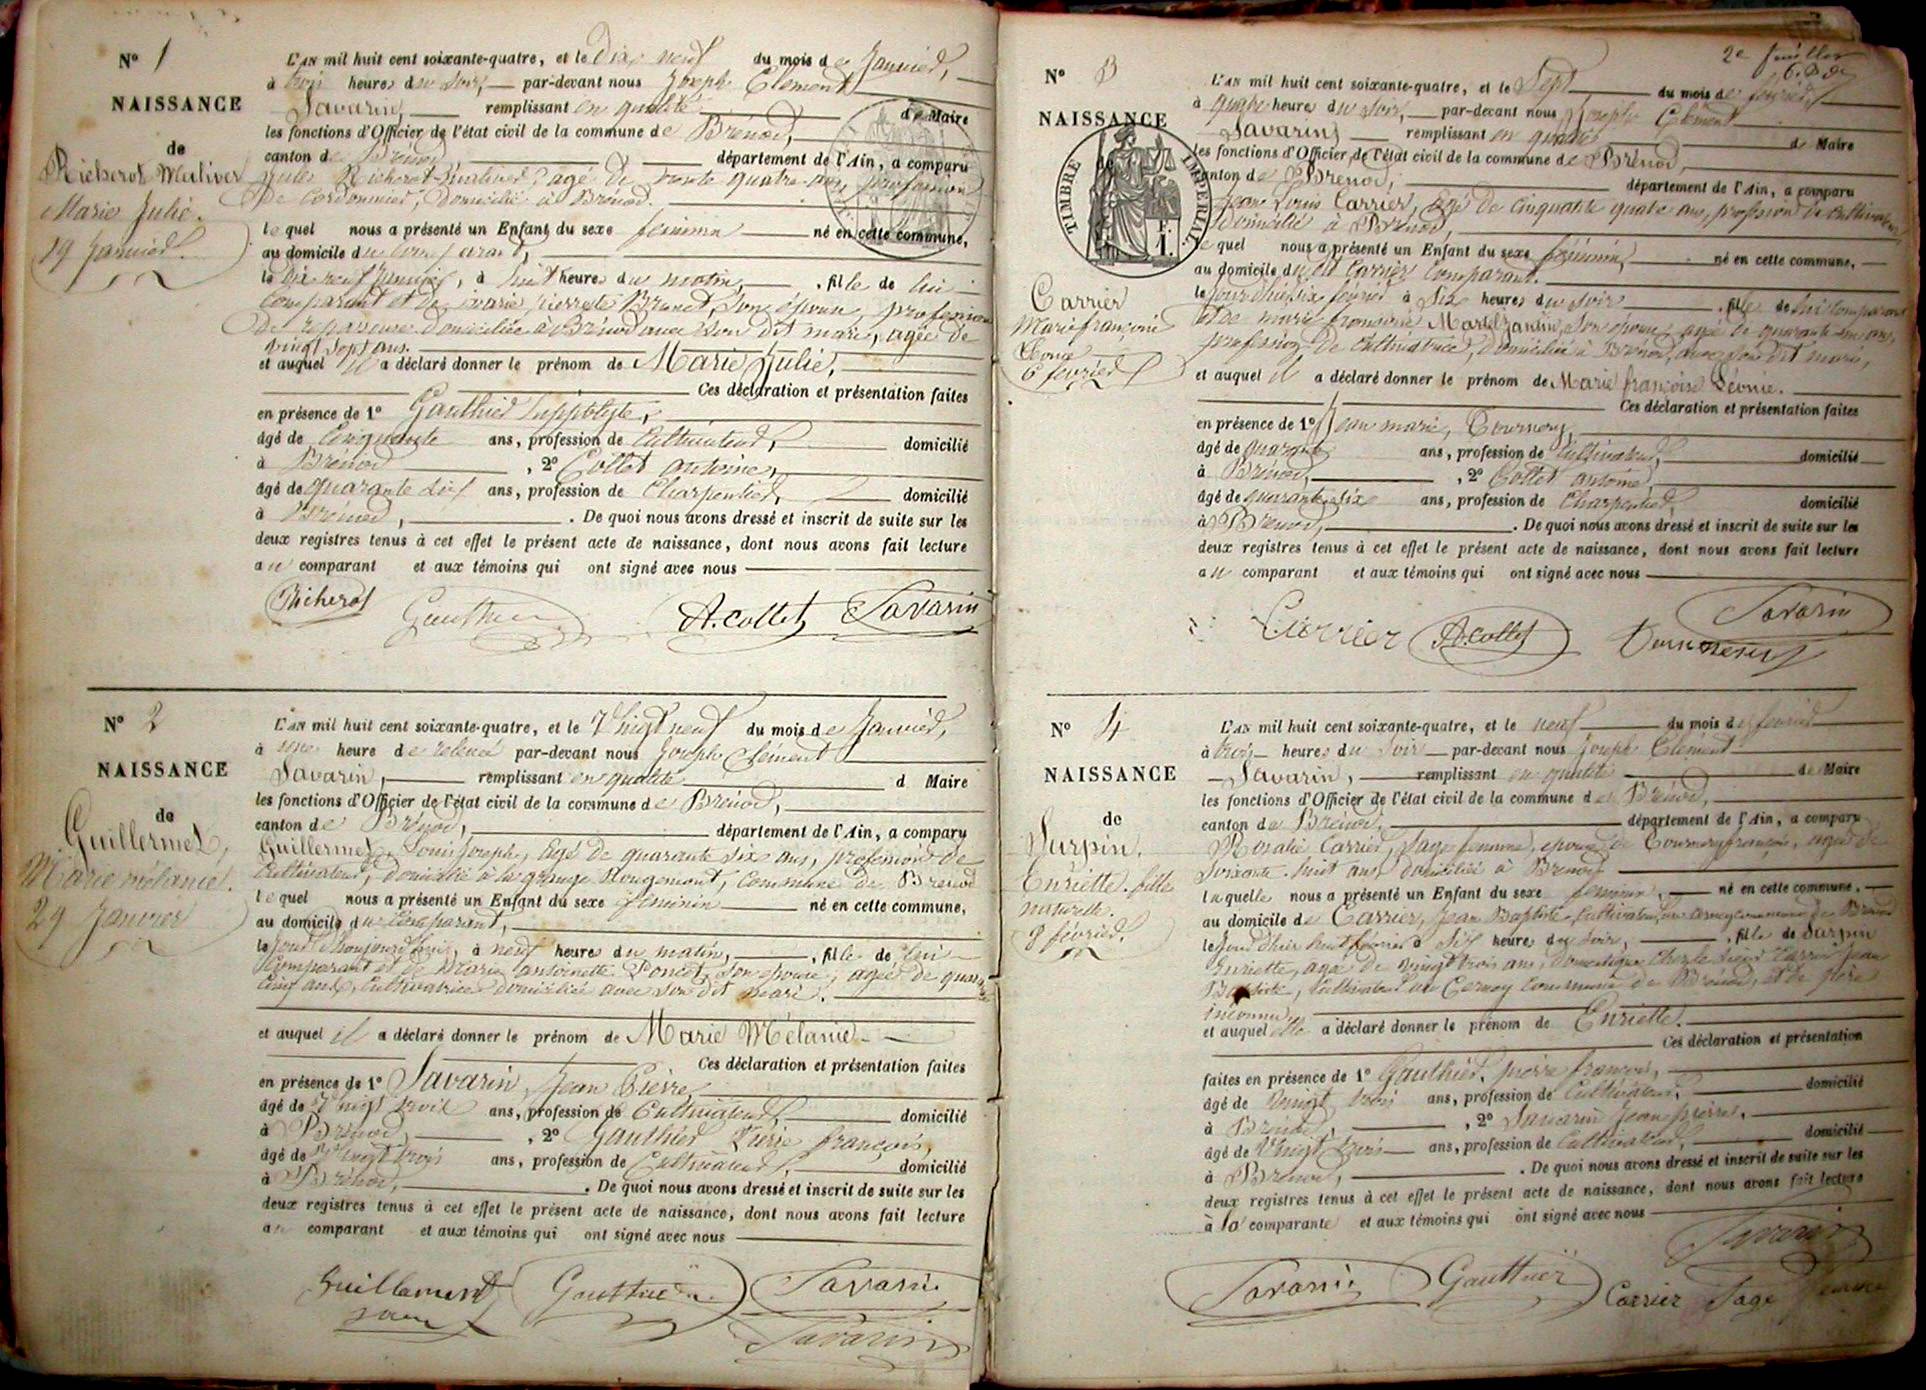 N° 1
NAISSANCE
de
Richerot Mulivet
Marie Julie.
19 Janvier.
L'AN mil huit cent soixante-quatre, et le Dix neuf du mois de Janvier,
à trois heures du soir, par-devant nous Joseph Clément
Savarin, remplissant en qualité de Maire
les fonctions d'Officier de l'état civil de la commune de Brénod,
canton de Brénod, département de l'Ain, a comparu
Jules Richerot agé de trente quatre ans, profession
de Cordonnier, domicilié à Brénod.
lequel nous a présenté un Enfant du sexe féminin né en cette commune,
au domicile du comparant,
le dix neuf Janvier, à huit heures du matin, fille de lui
comparant et de marie pierrette Brunet, son épouse, profession
de repasseuse domiciliée à Brénod avec son dit mari, agée de
vingt sept ans.
et auquel il a déclaré donner le prénom de Marie Julie,
Ces déclaration et présentation faites
en présence de 1° Gauthier hyppolyte,
âgé de Cinquante ans, profession de Cultivateur, domicilié
à Brénod, 2° Collet antoine,
âgé de quarante six ans, profession de Charpentier, domicilié
à Brénod, . De quoi nous avons dressé et inscrit de suite sur les
deux registres tenus à cet effet le présent acte de naissance, dont nous avons fait lecture
au comparant et aux témoins qui ont signé avec nous
Richerot Gauthier A. Collet Savarin
N° 2
NAISSANCE
de
Guillermet,
Marie mélanie.
29 Janvier
L'AN mil huit cent soixante-quatre, et le Vingt neuf du mois de Janvier,
à une heure de relevée par-devant nous Joseph Clément
Savarin, remplissant en qualité d Maire
les fonctions d'Officier de l'état civil de la commune de Brénod,
canton de Brénod, département de l'Ain, a comparu
Guillermet, Louis Joseph, agé de quarante six ans, profession de
Cultivateur, domicilié à la grange Rougemont, commune de Brénod
lequel nous a présenté un Enfant du sexe féminin né en cette commune,
au domicile du comparant,
le jour d'houjourd'hui, à neuf heures du matin, fille de lui
Comparant et de Marie antoinette Poncet, son épouse, agée de quarante
cinq ans, Cultivatrice domiciliée avec son dit mari.
et auquel il a déclaré donner le prénom de Marie Mélanie
Ces déclaration et présentation faites
en présence de 1° Savarin Jean Pierre,
âgé de Vingt trois ans, profession de Cultivateur, domicilié
à Brénod, 2° Gauthier Pierre françois,
âgé de Vingt trois ans, profession de Cultivateur, domicilié
à Brénod, . De quoi nous avons dressé et inscrit de suite sur les
deux registres tenus à cet effet le présent acte de naissance, dont nous avons fait lecture
au comparant et aux témoins qui ont signé avec nous
Guillermet Gauthier Savarin
Savarin
2e feuillet
N° 3
NAISSANCE
de
TIMBRE IMPERIAL
1 F.
Carrier
Marie françoise
Léonie
6 février
L'AN mil huit cent soixante-quatre, et le Sept du mois de février,
à quatre heures du soir, par-devant nous Joseph Clément
Savarin, remplissant en qualité de Maire
les fonctions d'Officier de l'état civil de la commune de Brénod,
canton de Brénod, département de l'Ain, a comparu
Jean Louis Carrier, agé de cinquante quatre ans, profession de cultivateur
domicilié à Brénod,
lequel nous a présenté un Enfant du sexe féminin, né en cette commune,
au domicile du dit Carrier comparant.
le jour d'hier six février à Six heures du soir, fille de lui comparant
et de marie françoise Martel Jantin, son épouse, agée de quarante ans,
profession de Cultivatrice, domiciliée à Brénod avec son dit mari,
et auquel il a déclaré donner le prénom de Marie françoise Léonie.
Ces déclaration et présentation faites
en présence de 1° Jean marie, Tournery,
âgé de quarante ans, profession de Cultivateur, domicilié
à Brénod, 2° Collet antoine,
âgé de quarante six ans, profession de Charpentier, domicilié
à Brénod, . De quoi nous avons dressé et inscrit de suite sur les
deux registres tenus à cet effet le présent acte de naissance, dont nous avons fait lecture
au comparant et aux témoins qui ont signé avec nous
Savarin
Carrier A. Collet Tournery
N° 4
NAISSANCE
de
Surpin,
Enriette. fille
naturelle.
8 février.
L'AN mil huit cent soixante-quatre, et le neuf du mois de février
à trois heures du soir par-devant nous Joseph Clément
Savarin, remplissant en qualité de Maire
les fonctions d'Officier de l'état civil de la commune de Brénod,
canton de Brénod, département de l'Ain, a comparu
Rosalie Carrier, Sage femme, épouse de Tournery françois, agée de
soixante huit ans, domiciliée à Brénod
laquelle nous a présenté un Enfant du sexe féminin, né en cette commune,
au domicile de Carrier, Jean Baptiste, Cultivateur au Cerney commune de Brénod
le jour d'hier huit février à Six heures du soir, fille de Surpin
Enriette, agée de vingt trois ans, domestique chez le sieur Carrier Jean
Baptiste, Cultivateur au Cerney commune de Brénod, et de père
inconnu,
et auquel elle a déclaré donner le prénom de Enriette.
Ces déclaration et présentation
faites en présence de 1° Gauthier, pierre françois,
âgé de Vingt trois ans, profession de Cultivateur, domicilié
à Brénod, 2° Savarin Jean pierre,
âgé de Vingt trois ans, profession de Cultivateur, domicilié
à Brénod, . De quoi nous avons dressé et inscrit de suite sur les
deux registres tenus à cet effet le présent acte de naissance, dont nous avons fait lecture
à la comparante et aux témoins qui ont signé avec nous
Savarin
Savarin Gauthier Carrier Sage femme